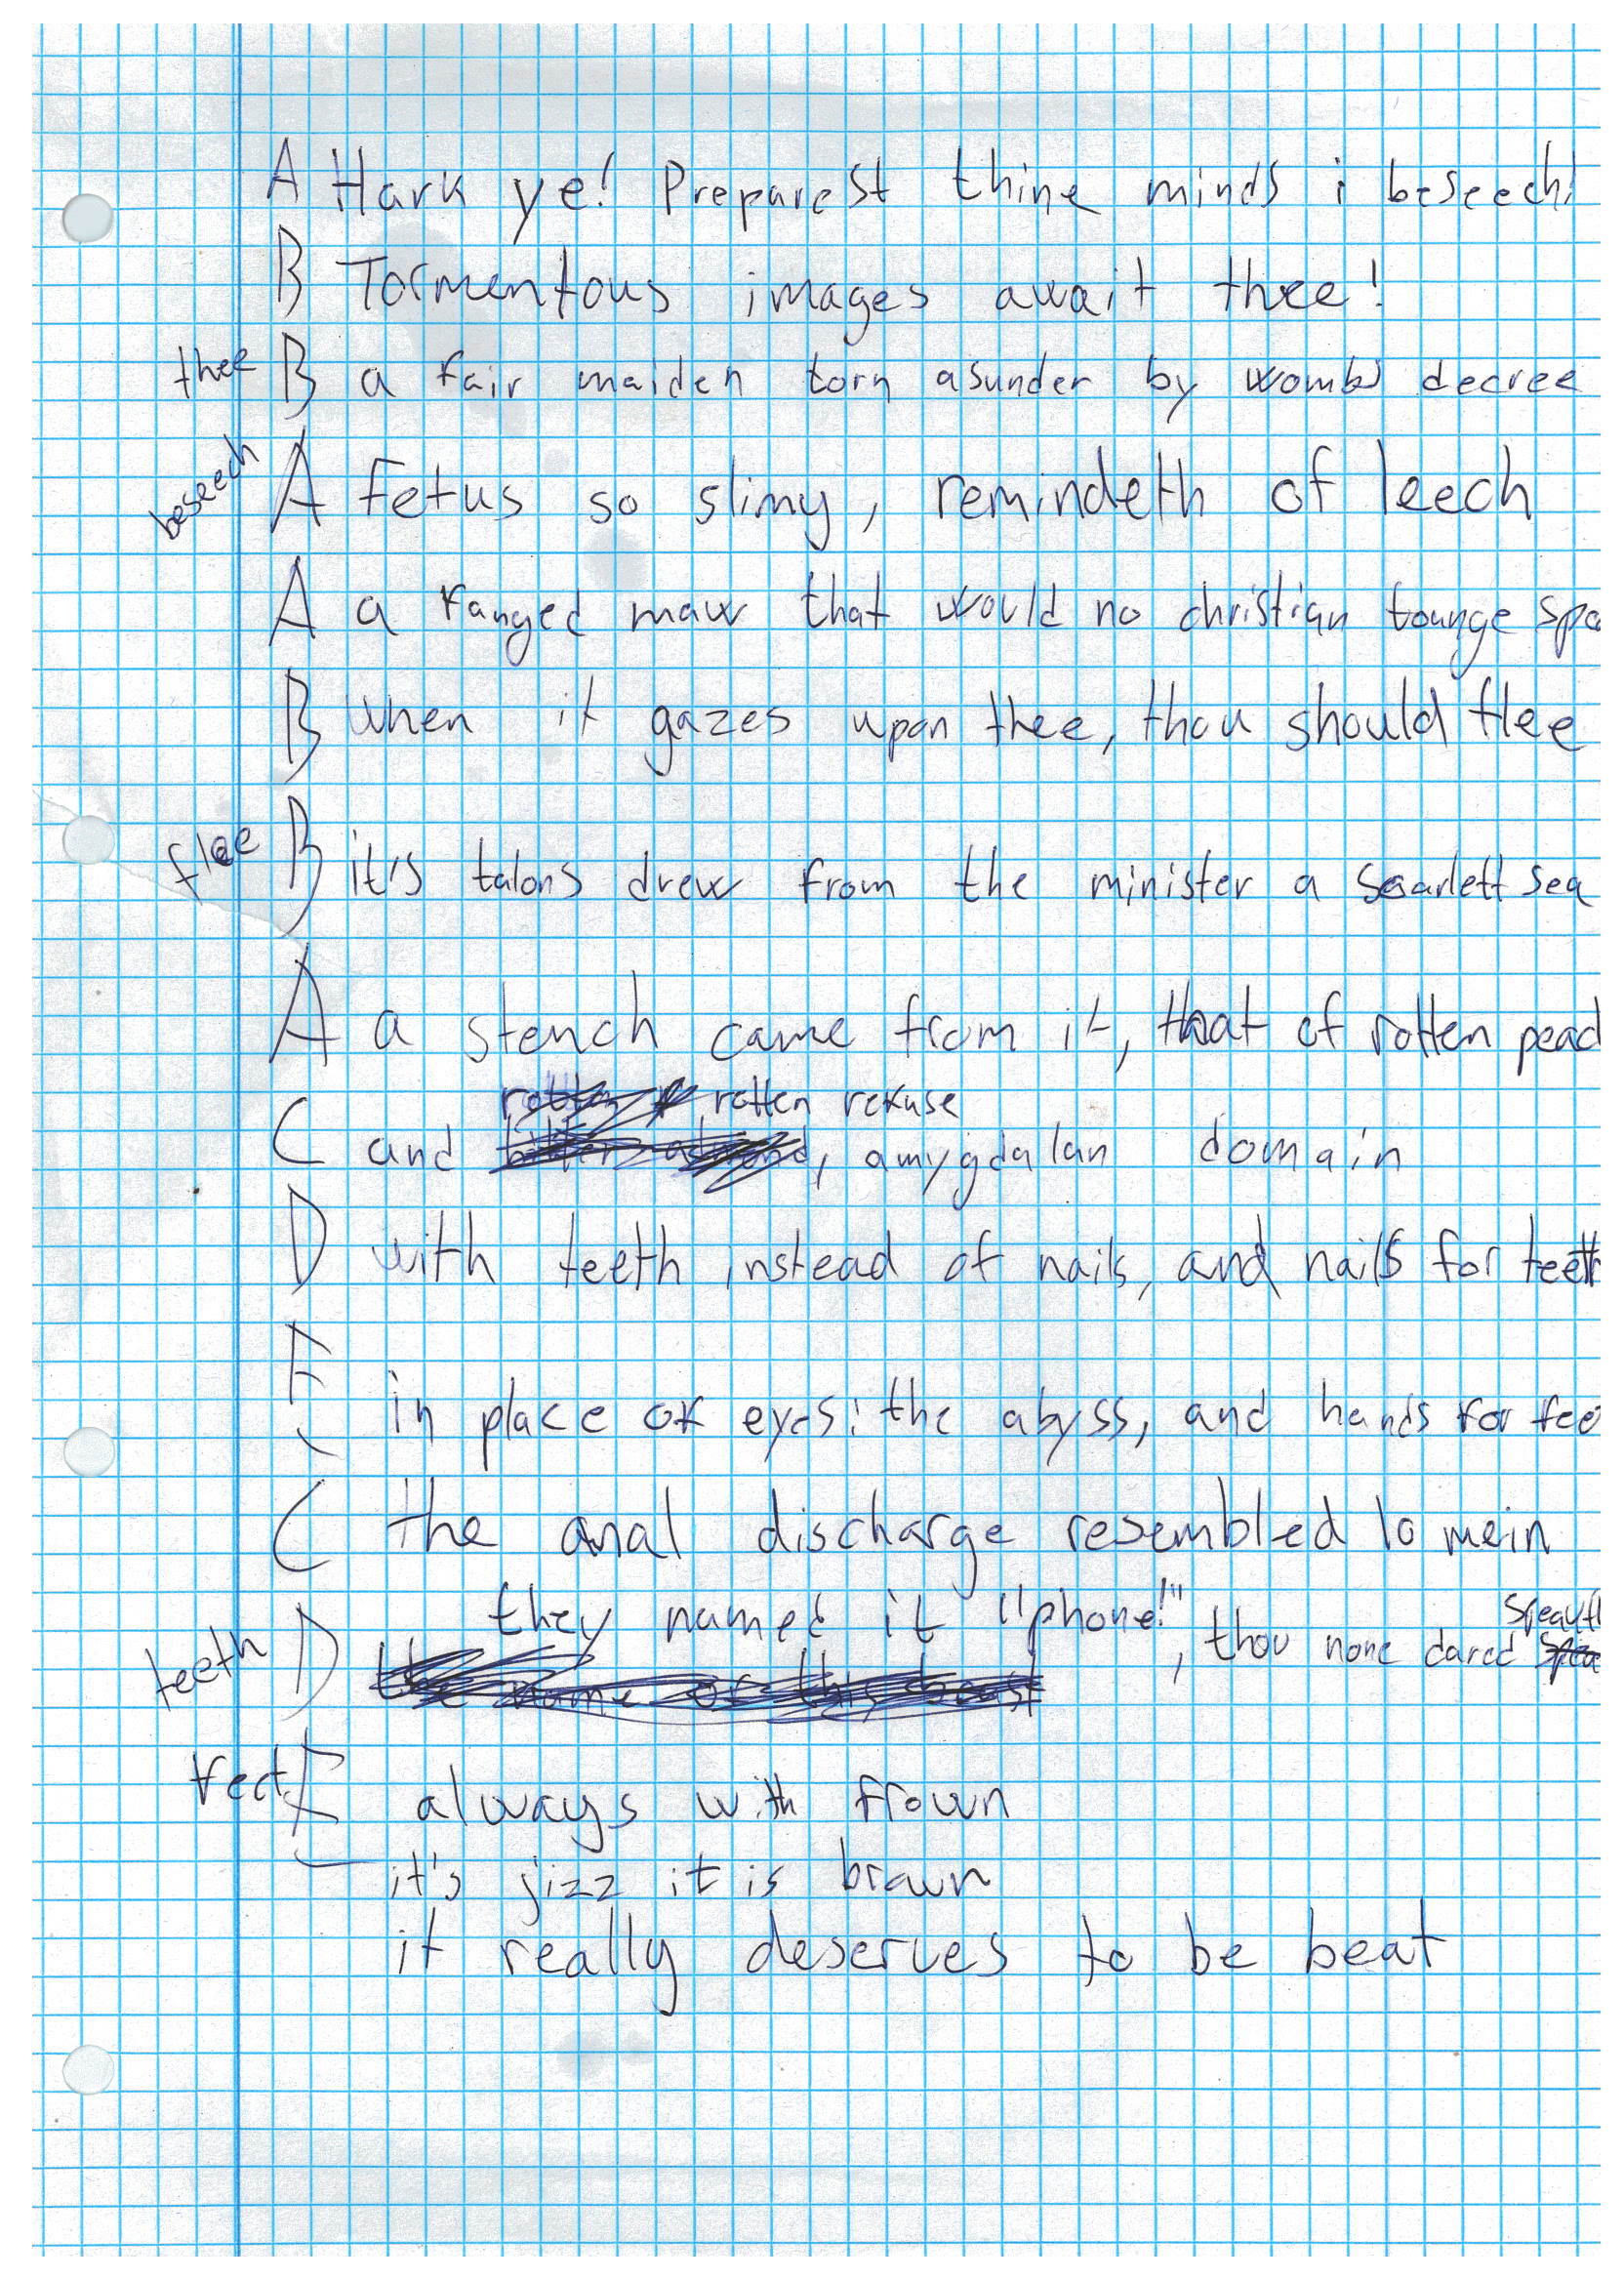 A Hark ye! Preparest thine minds i beseech!
B Tormentous images await thee!
thee B a fair maiden torn asunder by wombs decree
beseech A Fetus so slimy, remindeth of leech
A a fanged maw that would no christian tounge
B when it gazes upon thee, thou should flee
flee B it's talons drew from the minister a scarlett sea
A a stench came from it, that of rotten
rotten refuse
C and , amygdalan domain
D with teeth instead of nails, and nails for teeth
E in place of eyes: the abyss, and hands for
C the anal discharge resembled lo mein
they named it "phone!", thou none dared
teeth D the name of this beast
feet E always with frown
it's jizz it is brown
it really deserves to be beat